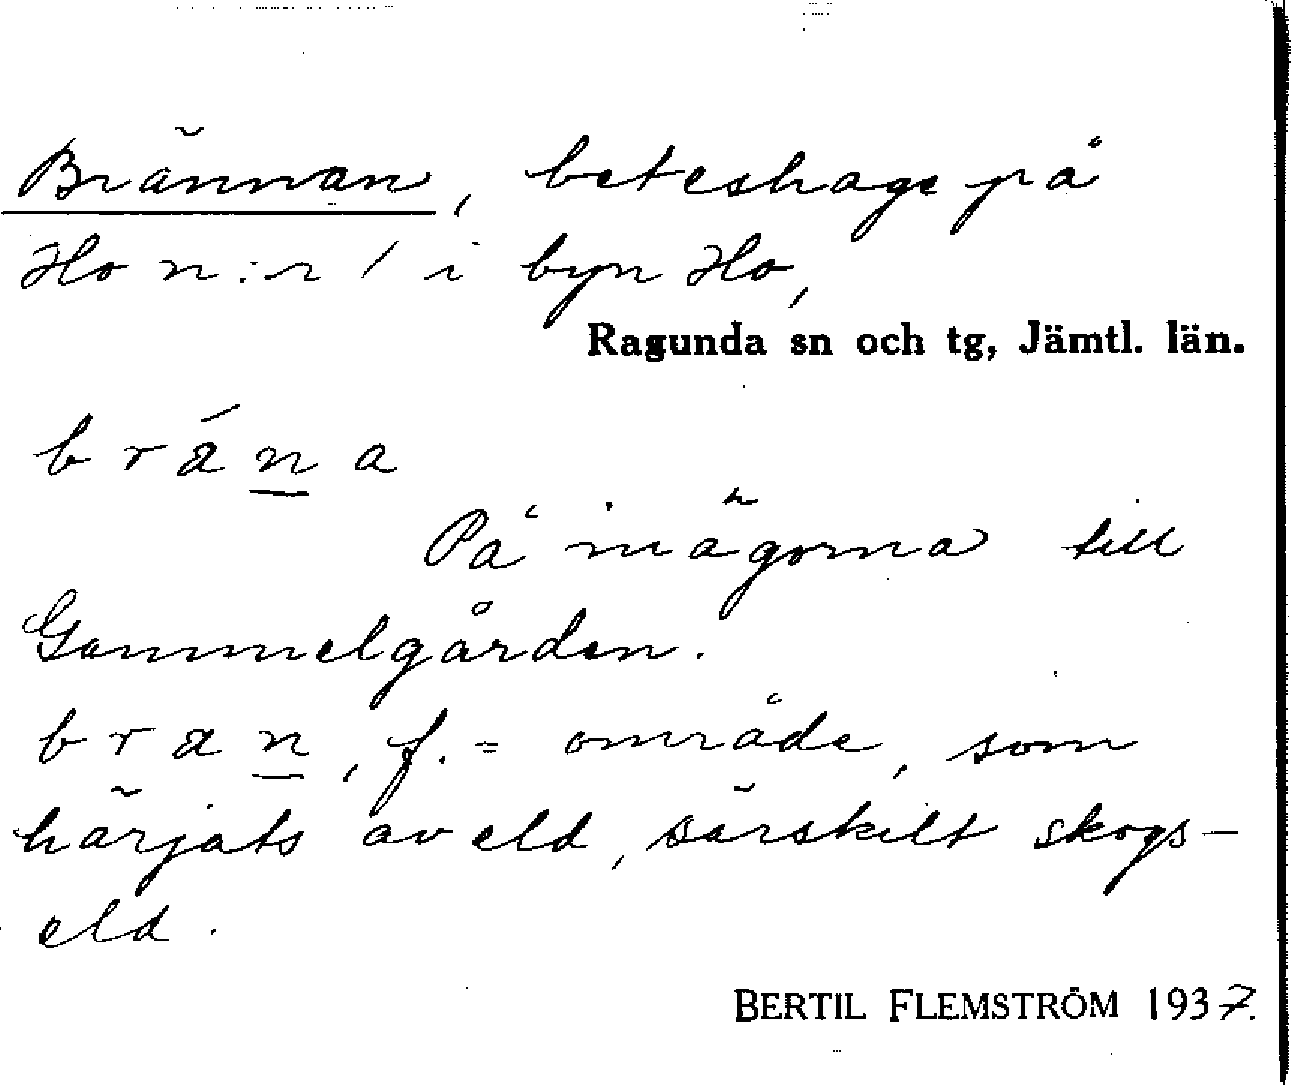 Brännan, beteshage på
Ho n:r 1 i byn Ho,
Ragunda sn och tg, Jämtl. län.
brána
På inägorna till
Gammelgården.
bran, f. = område, som
härjats av eld, särskilt skogs-
eld.
BERTIL FLEMSTRÖM 1937.